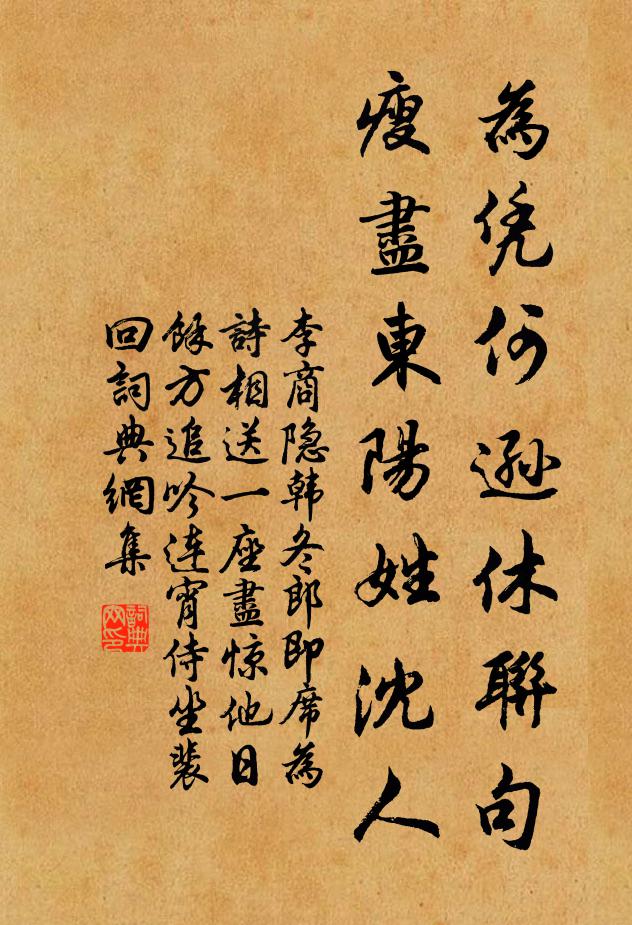 為凭何遜休聯句
瘦盡東陽姓沈人
李商隐韩冬郎即席為
詩相送一座盡惊他日
餘方追吟連宵侍坐裴
回詞典網集
詞典网印